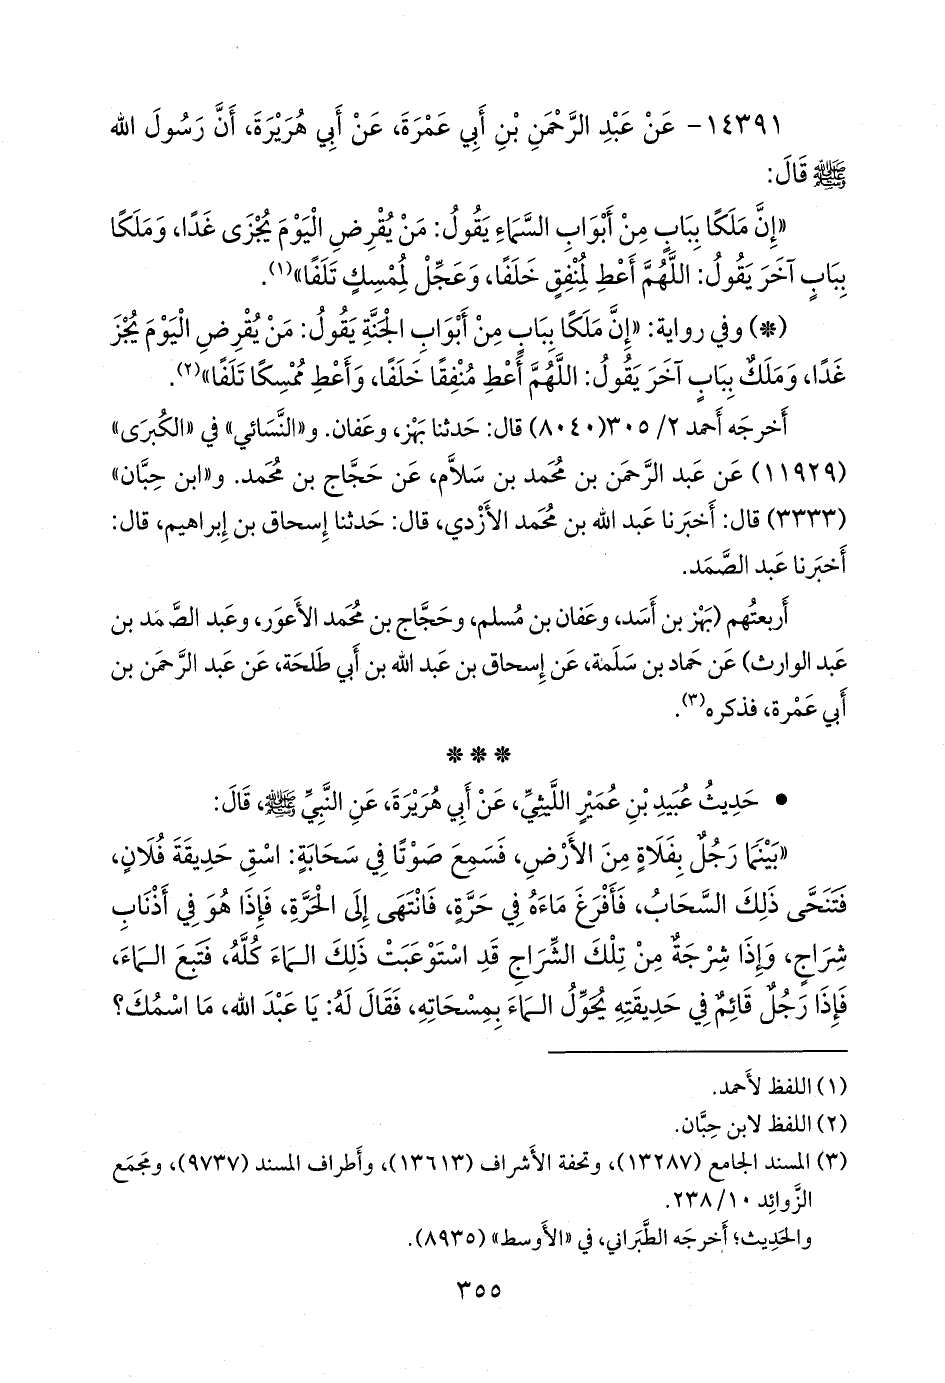 ١٤٣٩١- عَنْ عَبْدِ الرَّحْمَنِ بْنِ أَبِي عَمْرَةَ، عَنْ أَبِي هُرَيْرَةَ، أَنَّ رَسُولَ الله
ﷺ قَالَ:
«إِنَّ مَلَكًا بِبَابٍ مِنْ أَبْوَابِ السَّمَاءِ يَقُولُ: مَنْ يُقْرِضِ الْيَوْمَ يُجْزَى غَدًا، وَمَلَكًا
بِبَابٍ آخَرَ يَقُولُ: اللَّهُمَّ أَعْطِ لِمُنْفِقٍ خَلَفًا، وَعَجِّلْ لِمُمْسِكٍ تَلَفًا»(١).
(*) وفي رواية: «إِنَّ مَلَكًا بِبَابٍ مِنْ أَبْوَابِ الجَنَّةِ يَقُولُ: مَنْ يُقْرِضِ الْيَوْمَ يُجْزَ
غَدًا، وَمَلَكٌ بِبَابٍ آخَرَ يَقُولُ: اللَّهُمَّ أَعْطِ مُنْفِقًا خَلَفًا، وَأَعْطِ مُمْسِكًا تَلَفًا»(٢).
أَخرجَه أَحمد ٢/ ٣٠٥(٨٠٤٠) قال: حَدثنا بَهْز، وعَفان. و«النَّسائي» في «الكُبرَى»
(١١٩٢٩) عَن عَبد الرَّحمَن بن مُحمد بن سَلاَّم، عَن حَجَّاج بن مُحمد. و«ابن حِبَّان»
(٣٣٣٣) قال: أَخبَرنا عَبد الله بن مُحمد الأَزْدي، قال: حَدثنا إِسحاق بن إِبراهيم، قال:
أَخبَرنا عَبد الصَّمَد.
أَربعتُهم (بَهْز بن أَسَد، وعَفان بن مُسلم، وحَجَّاج بن مُحمد الأَعوَر، وعَبد الصَّمَد بن
عَبد الوارث) عَن حَماد بن سَلَمة، عَن إِسحاق بن عَبد الله بن أَبي طَلحَة، عَن عَبد الرَّحمَن بن
أَبي عَمْرة، فذكره(٣).
***
• حَدِيثُ عُبَيدِ بْنِ عُمَيْرٍ اللَّيثِيِّ، عَنْ أَبِي هُرَيْرَةَ، عَنِ النَّبِيِّ ﷺ، قَالَ:
«بَيْنَما رَجُلٌ بِفَلَاةٍ مِنَ الأَرْضِ، فَسَمِعَ صَوْتًا فِي سَحَابَةٍ: اسْقِ حَدِيقَةَ فُلَانٍ،
فَتَنَحَّى ذَلِكَ السَّحَابُ، فَأَفْرَغَ مَاءَهُ فِي حَرَّةٍ، فَانْتَهَى إِلَى الْحَرَّةِ، فَإِذَا هُوَ فِي أَذْنَابِ
شِرَاجٍ، وَإِذَا شِرْجَةٌ مِنْ تِلْكَ الشِّرَاجِ قَدِ اسْتَوْعَبَتْ ذَلِكَ الماءَ كُلَّهُ، فَتَبِعَ الماءَ،
فَإِذَا رَجُلٌ قَائِمٌ فِي حَدِيقَتِهِ يُحَوِّلُ الماءَ بِمِسْحَاتِهِ، فَقَالَ لَهُ: يَا عَبْدَ الله، مَا اسْمُكَ؟
(١) اللفظ لأَحمد.
(٢) اللفظ لابن حِبَّان.
(٣) المسند الجامع (١٣٢٨٧)، وتحفة الأَشراف (١٣٦١٣)، وأَطراف المسند (٩٧٣٧)، ومَجمَع
الزَّوائِد ١٠/ ٢٣٨.
والحَدِيث؛ أَخرجَه الطَّبَراني، في «الأَوسط» (٨٩٣٥).
٣٥٥